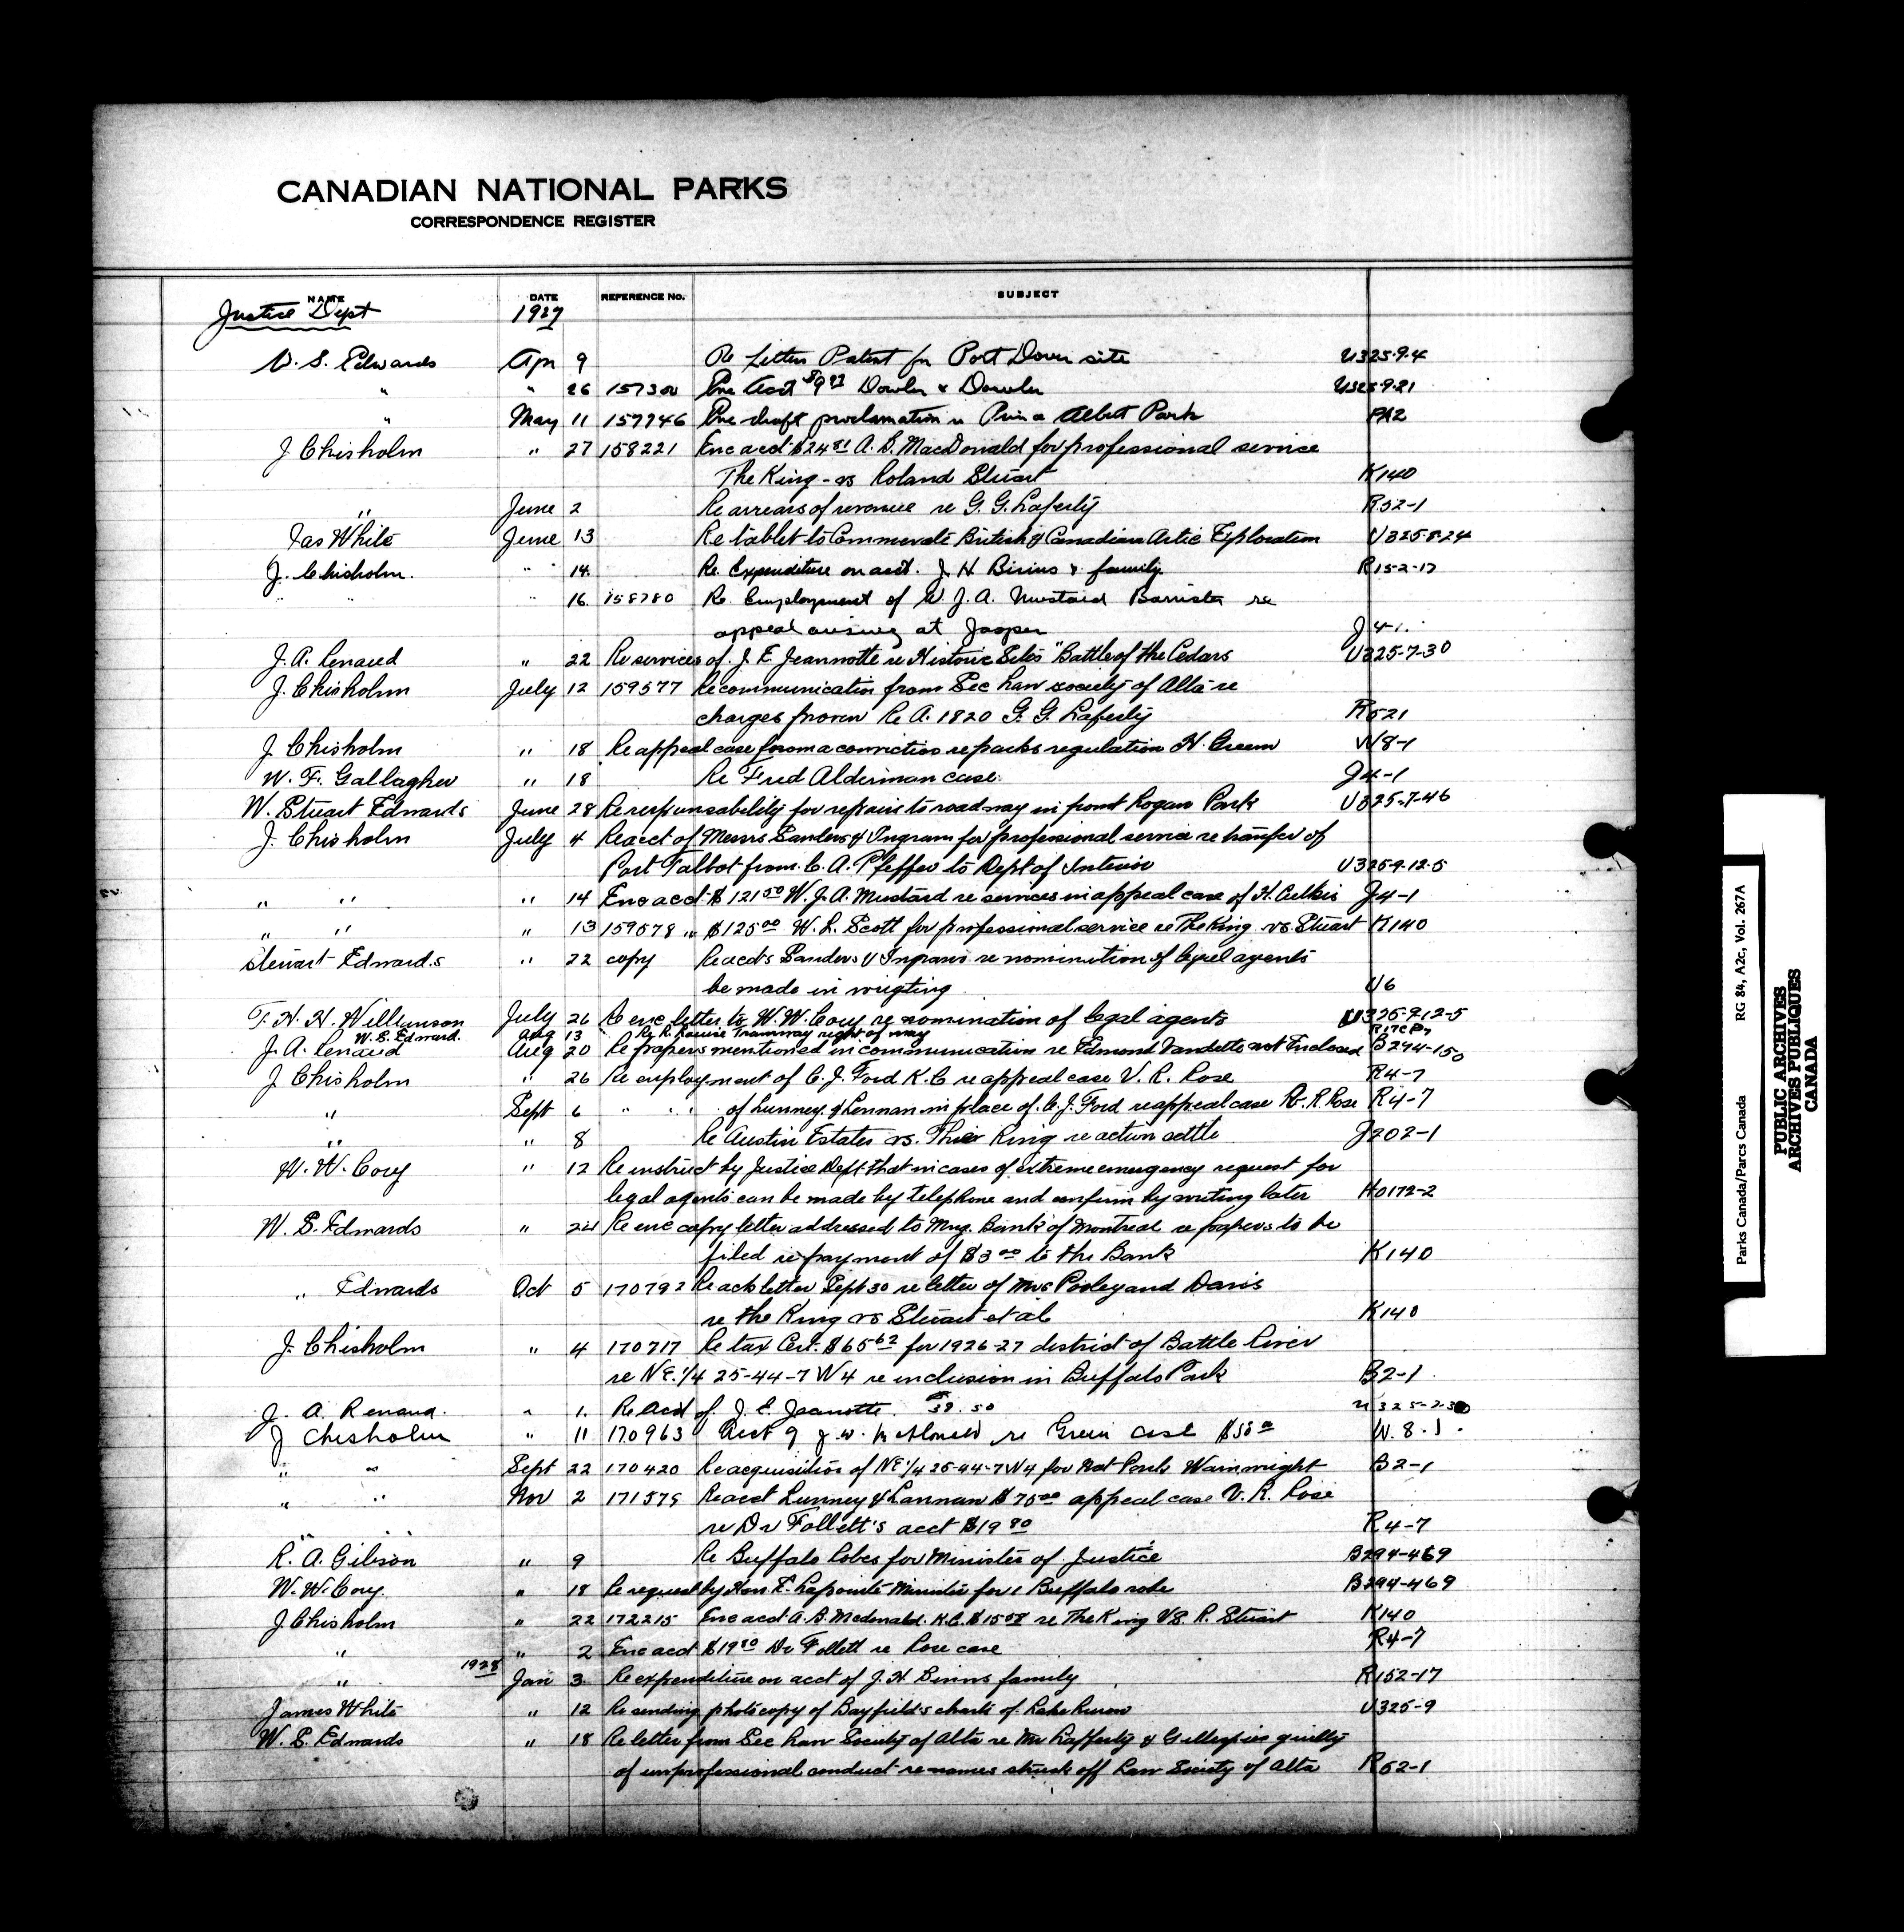 CANADIAN NATIONAL PARKS
CORRESPONDENCE REGISTER
NAME DATE REFERENCE No. SUBJECT
Justice Dept 1927
W. S. Edwards Apr 9 Re Letters Patent for Port Dover site U325-9-4
" " 26 157300 Enc Acct $9 Dowler & Dowler U325-9-21
" May 11 157746 Enc draft proclamation re Prince Albert Park PA2
J Chisholm " 27 158221 Enc acct $24 81 A. S. MacDonald for professional service
The King - vs Roland Stuart K140
" June 2 Re arrears of revenue re G. G. Laferty R52-1
Jas White June 13 Re tablet to Commerate British & Canadian Artic Exploration U325-8-24
J. Chisholm. " 14 Re. Expenditure on acct. J H Binins & family. R15-2-17
" " " 16. 158780 Re. Employment of W. J. A. Mustard Barrister re
appeal arising at Jasper J4-1.
J. A. Renaud " 22 Re services of. J. E. Jeannotte re Historic Sites "Battle of the Cedars U325-7-30
J. Chisholm July 12 159577 Re communication from Sec Law society of Alta re
charges proven Re A. 1820 G. G. Laferty R521
J. Chisholm " 18 Re appeal case from a conviction re parks regulation H. Green W8-1
W. F. Gallagher " 18 Re Fred Alderman case. J4-1
W. Stuart Edwards June 28 Re responsability for repairs to roadway in front Logan Park U325-7-46
J. Chisholm July 4 Re acct of Messrs Sanders & Ingram for professional service re transfer of
Port Talbot from. C. A. Pfeffer to Dept of Interior U325-9-12-5
" " " 14 Enc acct $121 50 W. J. A. Mustard re services in appeal case of H. J4-1
" " " 13 159578 " $125 00 W. L. Scott for professional service re The King vs Stuart K140
Stewart Edwards " 22 copy Re accts Sanders & Ingrams re nomination of legal agents
be made in wrigting U6
T. H. H. Williamson July 26 Re enc letter to W. W. Cory re nomination of legal agents U325-9-12-5
W. S. Edward. Aug 13 Re R. Louise Tramway right of way
J. A. Renaud Aug 20 Re papers mentioned in communication re Edmond Vandette not Enclosed B294-150
J Chisholm " 26 Re employment of C. J. Ford K. C re appeal case V. R. Rose R4-7
" Sept 6 " " " of Lunney & Lannan in place of. C. J. Ford re appeal case R. Rose R4-7
" " 8 Re Austin Estates vs. The King re action settle J202-1
W. W. Cory " 12 Re instruct by Justice Dept that in cases of extreme emergency request for
legal agents can be made by telephone and confirm by writing later H0172-2
W. S. Edwards " 24 Re enc copy letter addressed to Mng. Bank of Montreal re papers to be
filed re payment of $3 00 to the Bank K140
" Edwards Oct 5 170792 Re ack letter Sept 30 re letter of Mrs Pooley and Davis
re the King vs Stuart et al K140
J. Chisholm " 4 170717 Re tax Cert. $65 62 for 1926-27 district of Battle River
re NE. 1/4 25-44-7 W4 re inclusion in Buffalo Park B2-1
J. A. Renaud. " 1. Re Acct of J. E. Jeanotte. 38.50
J Chisholm " 11 170963 Acct of J. W. McDonald re Green case $50 00 W. 8. 1.
" " Sept 22 170420 Re acquisition of NE 1/4 25-44-7 W4 for Nat Park Wainwright B2-1
" " Nov 2 171579 Re acct Lunney & Lannan $75 00 appeal case V. R. Rose
re Dr Follett's acct $19 80 R4-7
R. A. Gibson " 9 Re Buffalo Robes for Minister of Justice B294-469
W. W. Cory. " 18 Re request by Hon E. Lapointe Minister for 1 Buffalo robe B294-469
J. Chisholm " 22 172215 Enc acct A. S. Mcdonald. K.C. $15 08 re The King VS. R. Stuart K140
" " 2 Enc acct $19 80 Dr Follett re Rose case R4-7
" 1928 Jan 3. Re expenditure on acct of J. H. Binns family R152-17
James White " 12 Re sending photo copy of Bayfields charts of Lake Huron U325-9
W. S. Edwards " 18 Re letter from Sec Law Society of Alta re Mr Lafferty & Gillespies guilty
of unprofessional conduct re names struck off Law Society of Alta R52-1
Parks Canada/Parcs Canada RG 84, A2c, Vol. 267A
PUBLIC ARCHIVES
ARCHIVES PUBLIQUES
CANADA